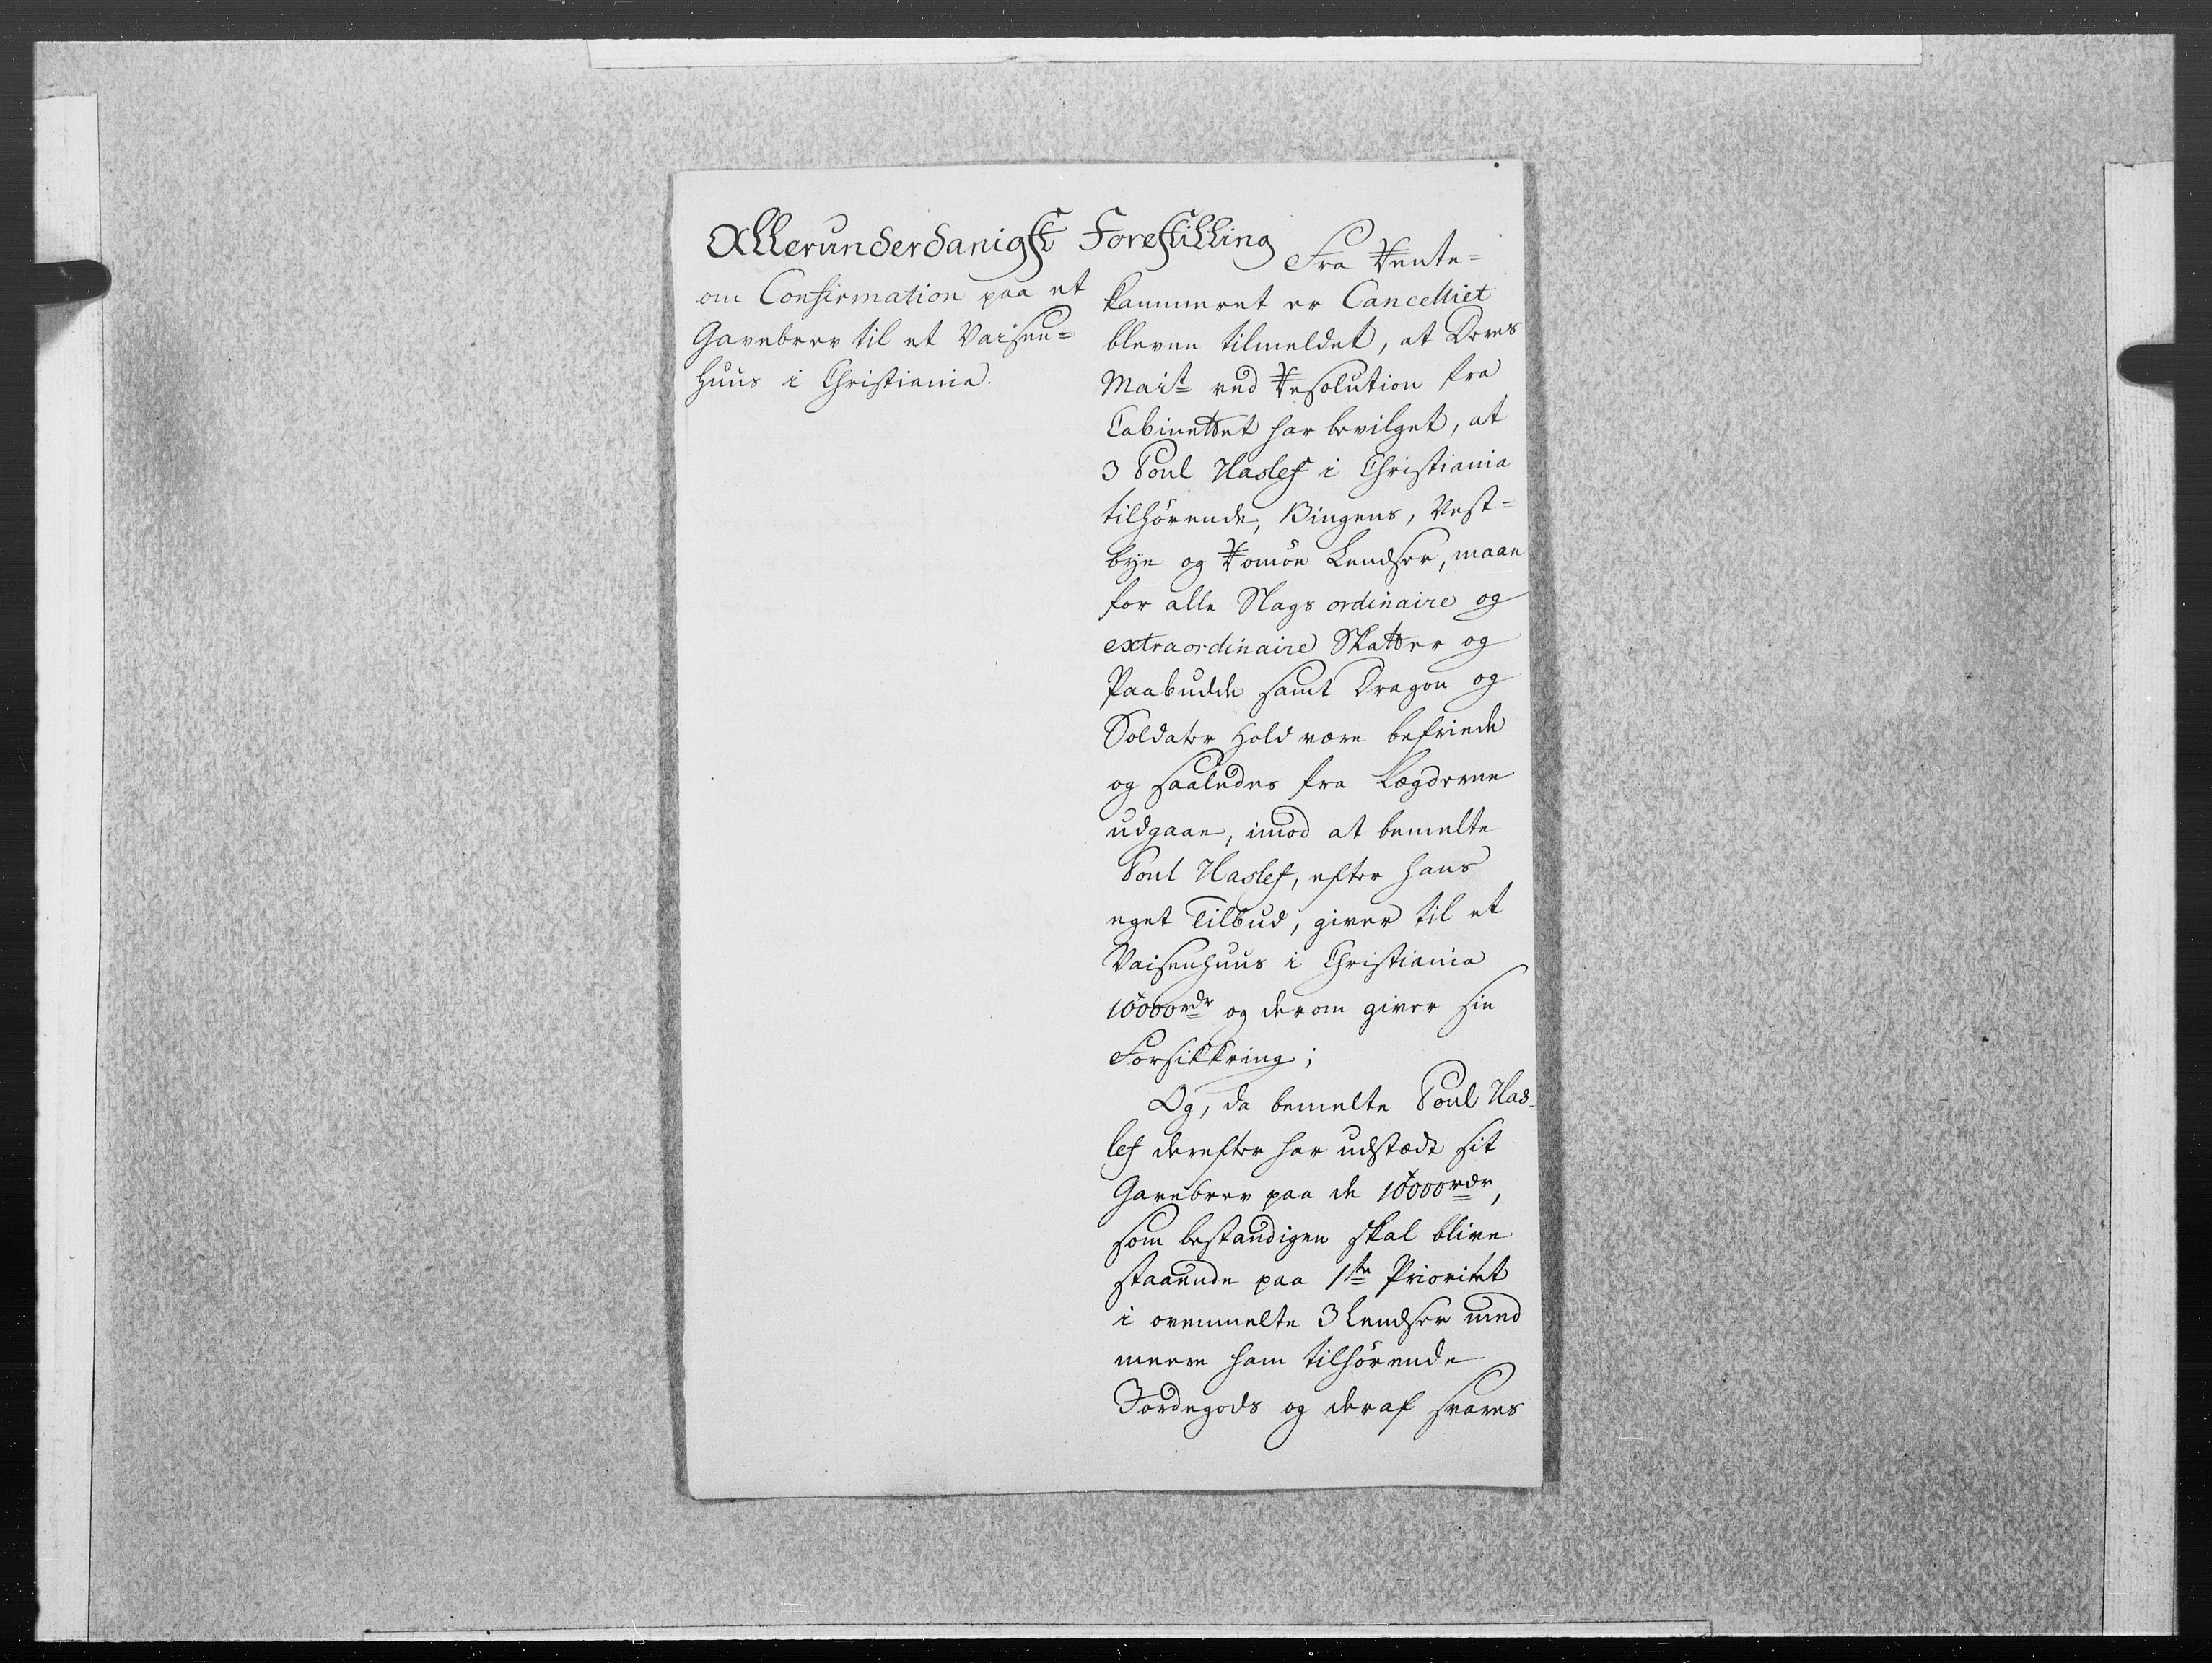 Allerunderdanigst Forestilling
om Confirmation paa et
Gavebrev til et Vaisen=
huus i Christiania.
Fra Rente=
kammeret er Cancelliet
bleven tilmeldet, at Deres
Mait ved Resolution fra
Cabinettet har bevilget, at
3 Poul Haslef i Christiania
tilhørende, Bingens, Vest=
bye og Romøe Lendser, maae
for alle Slags ordinaire og
extraordinaire Skatter og
Paabudde samt Dragon og
Soldater Hold være befriede
og saaledes fra Lægderne
udgaae, imod at bemelte
Poul Haslef, efter hans
eget Tilbud, giver til et
Vaisenhuus i Christiania
10000rdr og derom giver sin
Forsikkring;
Og, da bemelte Poul Has-
lef derefter har udstædt sit
Gavebrev paa de 10000rdr,
som bestandigen skal blive
staaende paa 1ste Prioritet
i ovenmelte 3 Lendser med
meere ham tilhørende
Jordegods og deraf svares